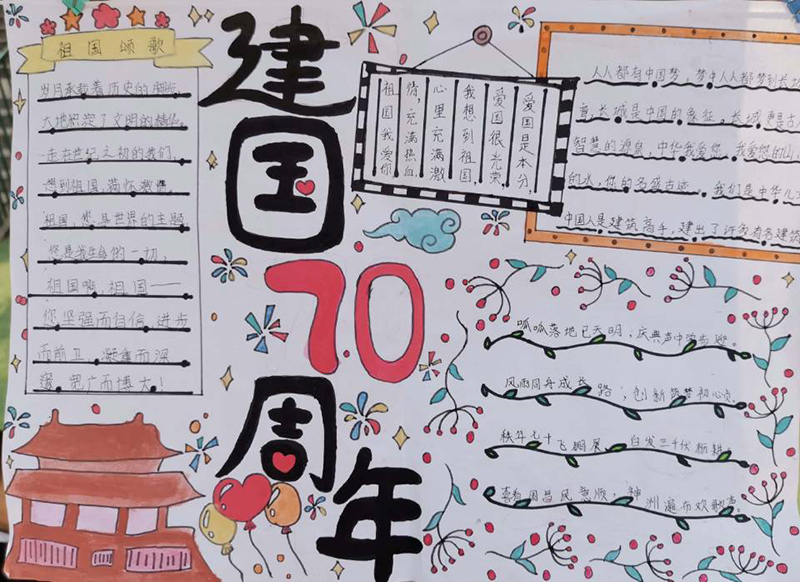 祖国颂歌
岁月承载着历史的
大地积淀了文明的精华
走在世纪之初的我们,
想到祖国满怀激情,
祖国,您是世界的主题
您是我生命的一切,
祖国啊,祖国——
您坚强而自信,进步
而前卫,凝重而深
邃,宽广而博大!
建国70周年
爱国是本分,
爱国很光荣,
我想到祖国,
心里充满激
情,充满热血,
祖国我爱你
人人都有中国梦,梦中人人都梦到长城
长城是中国的象征,长城更是古
智慧的源泉,中华我爱您,我爱您的山
的水,您的名盛古迹,我们是中华儿
中国人是建筑高手,建出了许多有名建筑
呱呱落地已天明,庆典声中
风雨同舟成长路,创新筑梦初心
七十飞鹏展,
国昌民意顺,神洲遍布欢歌声